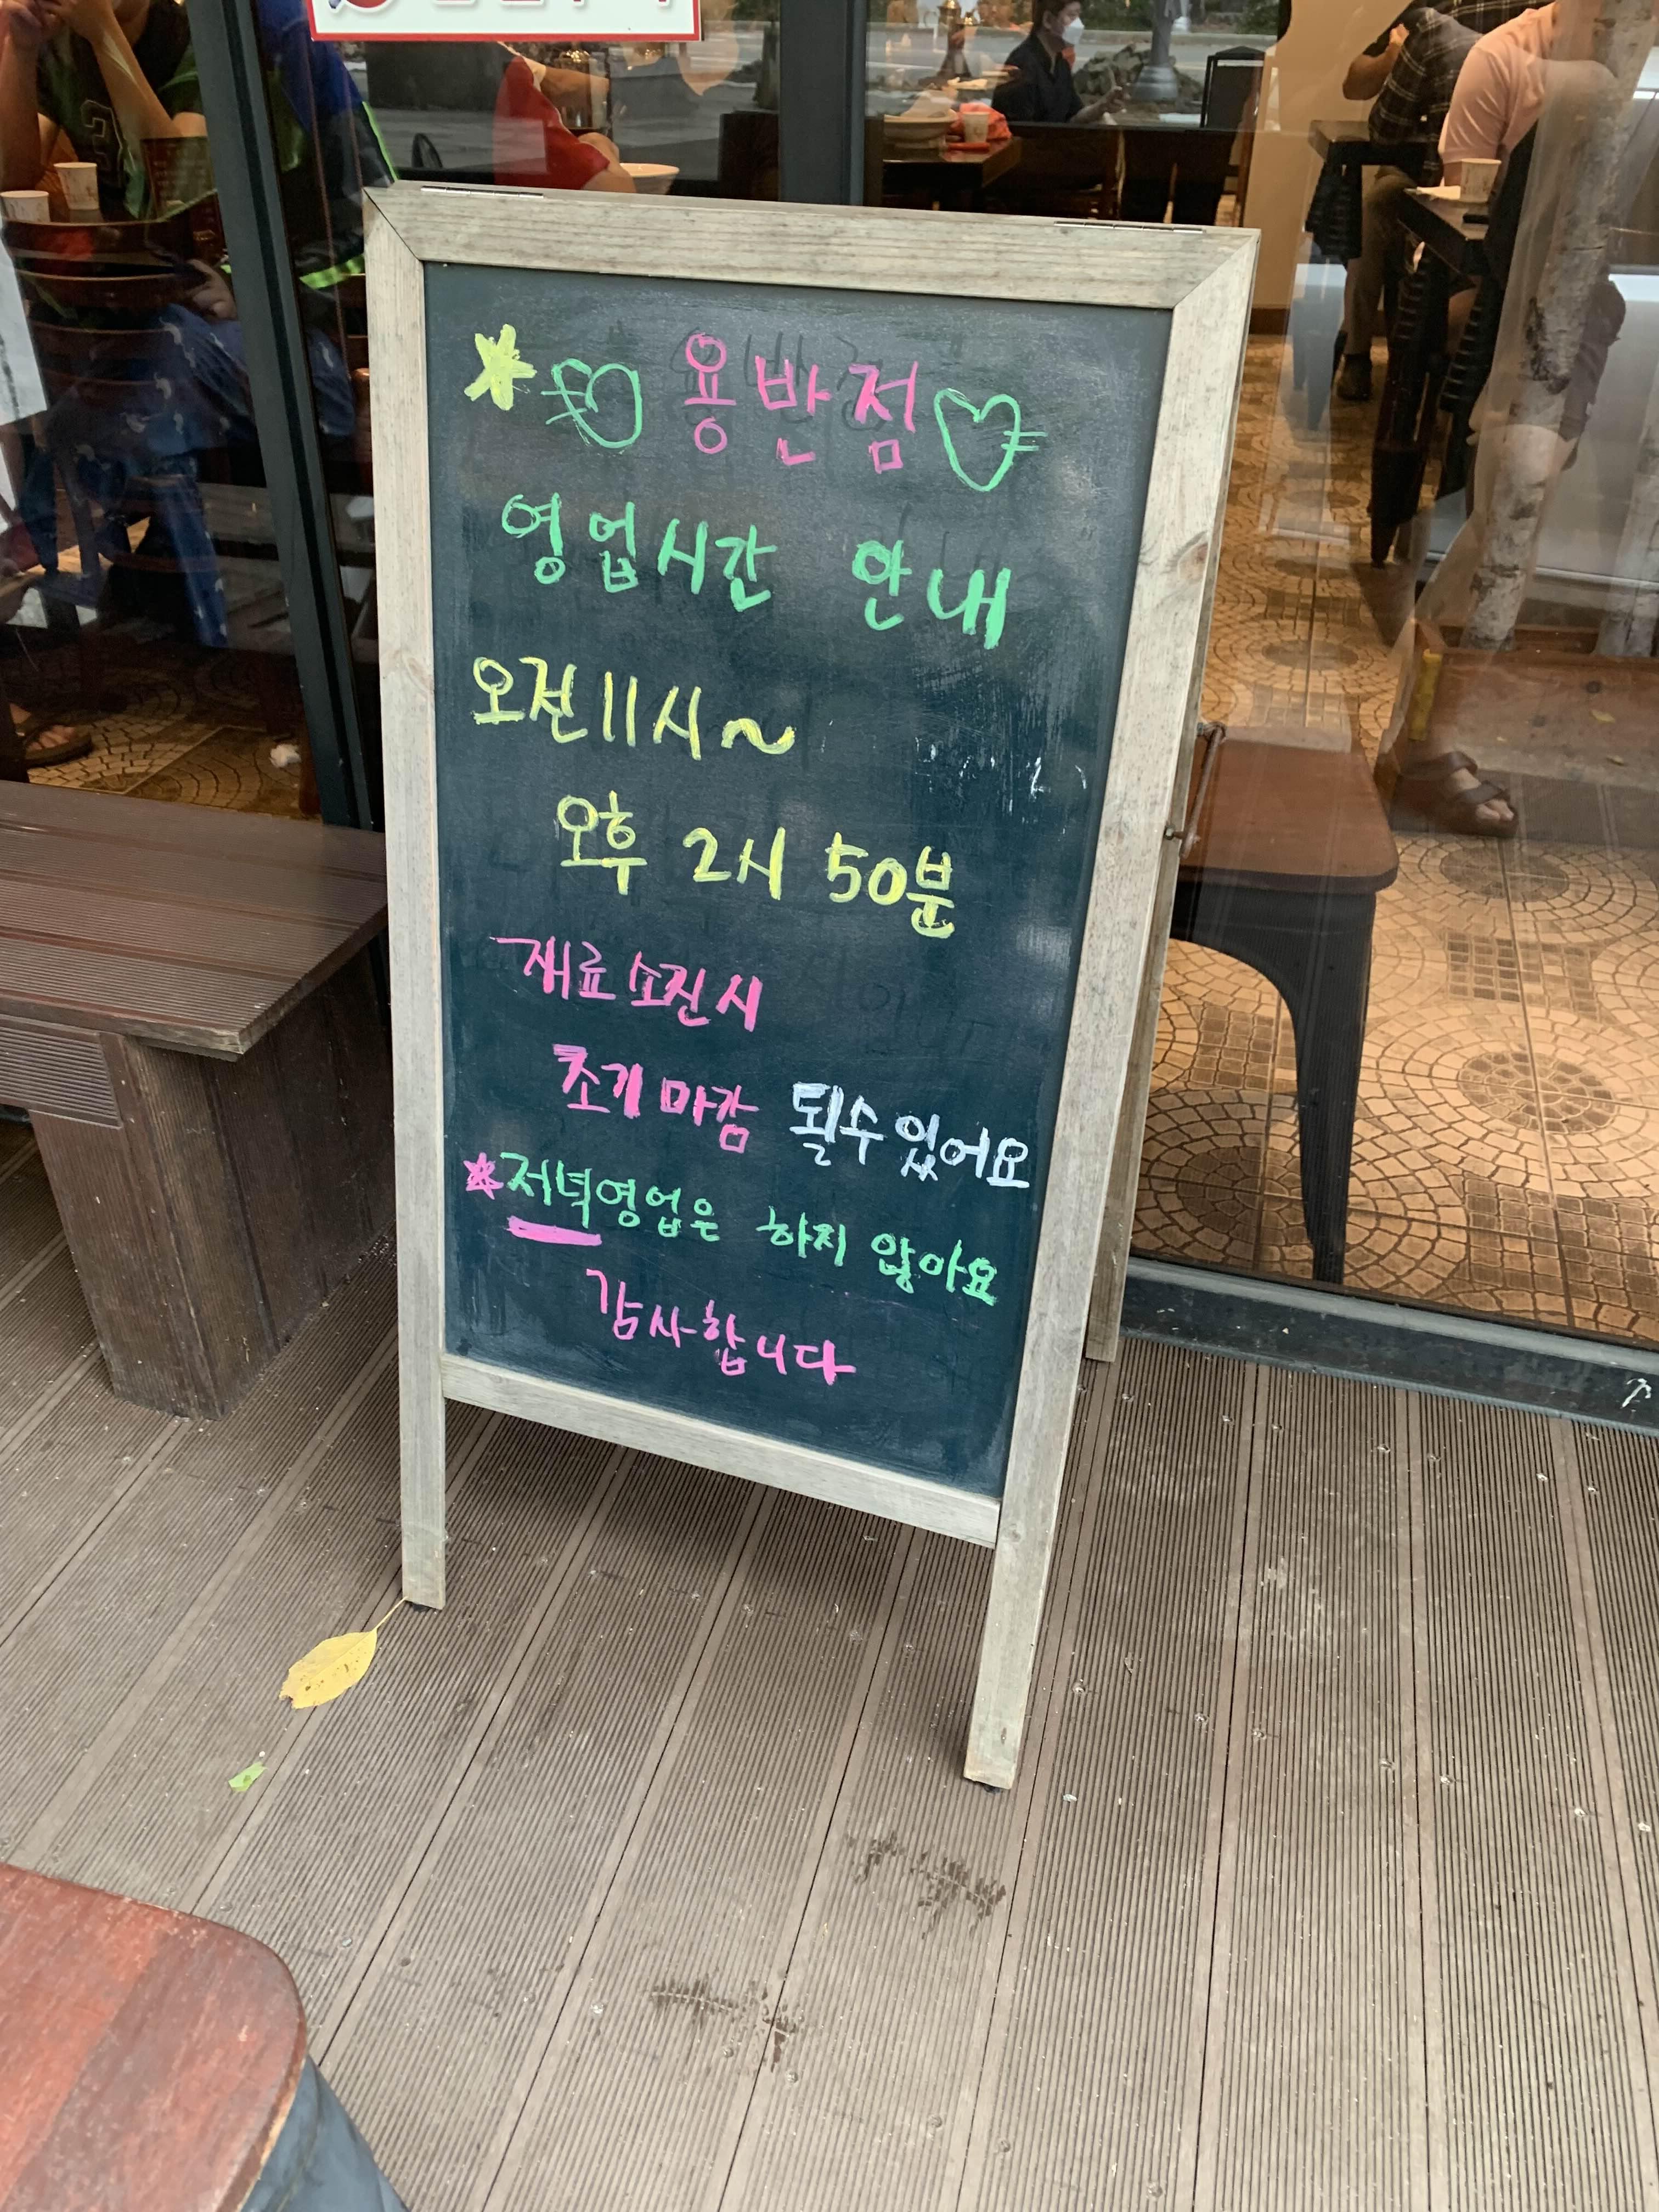 용반점
영업시간 안내
오전 11시~
오후 2시 50분
재료소진시
조기마감 될수있어요
*저녁영업은 하지 않아요
감사합니다